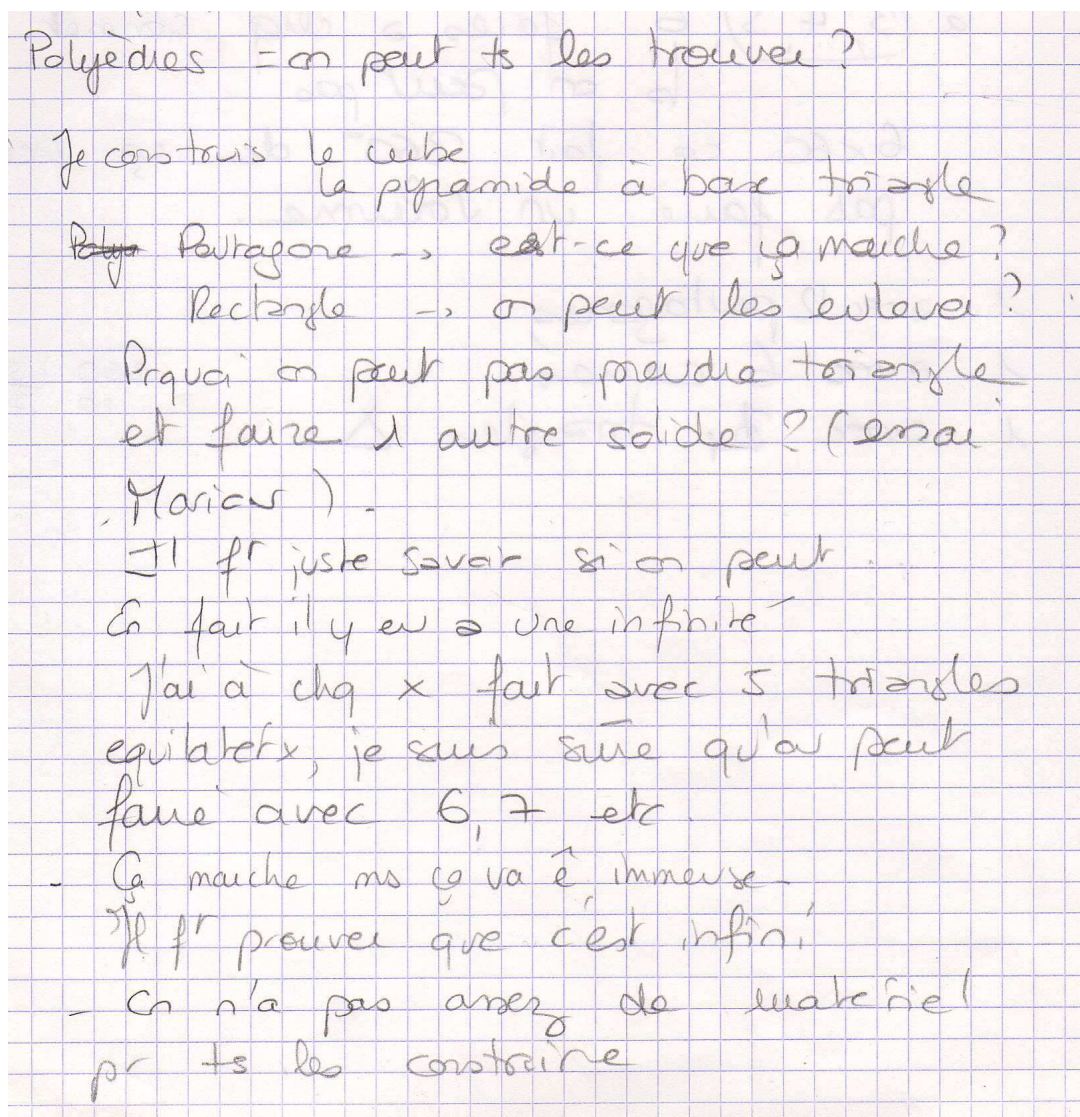 Polyèdres = on peut ts les trouver ?
Je construis le cube
la pyramide à base triangle
Pentagone → est-ce que ça marche ?
Rectangle → on peut les enlever ?
Prquoi on peut pas prendre triangle
et faire 1 autre solide ? (essai
Marion).
Il ft juste savoir si on peut.
En fait il y en a une infinité
J'ai à chq x fait avec 5 triangles
equilaterx, je suis sûre qu'on peut
faire avec 6, 7 etc.
- Ça marche ms ça va ê immense.
Il ft prouver que c'est infini
- On n'a pas assez de matériel
pr ts les construire